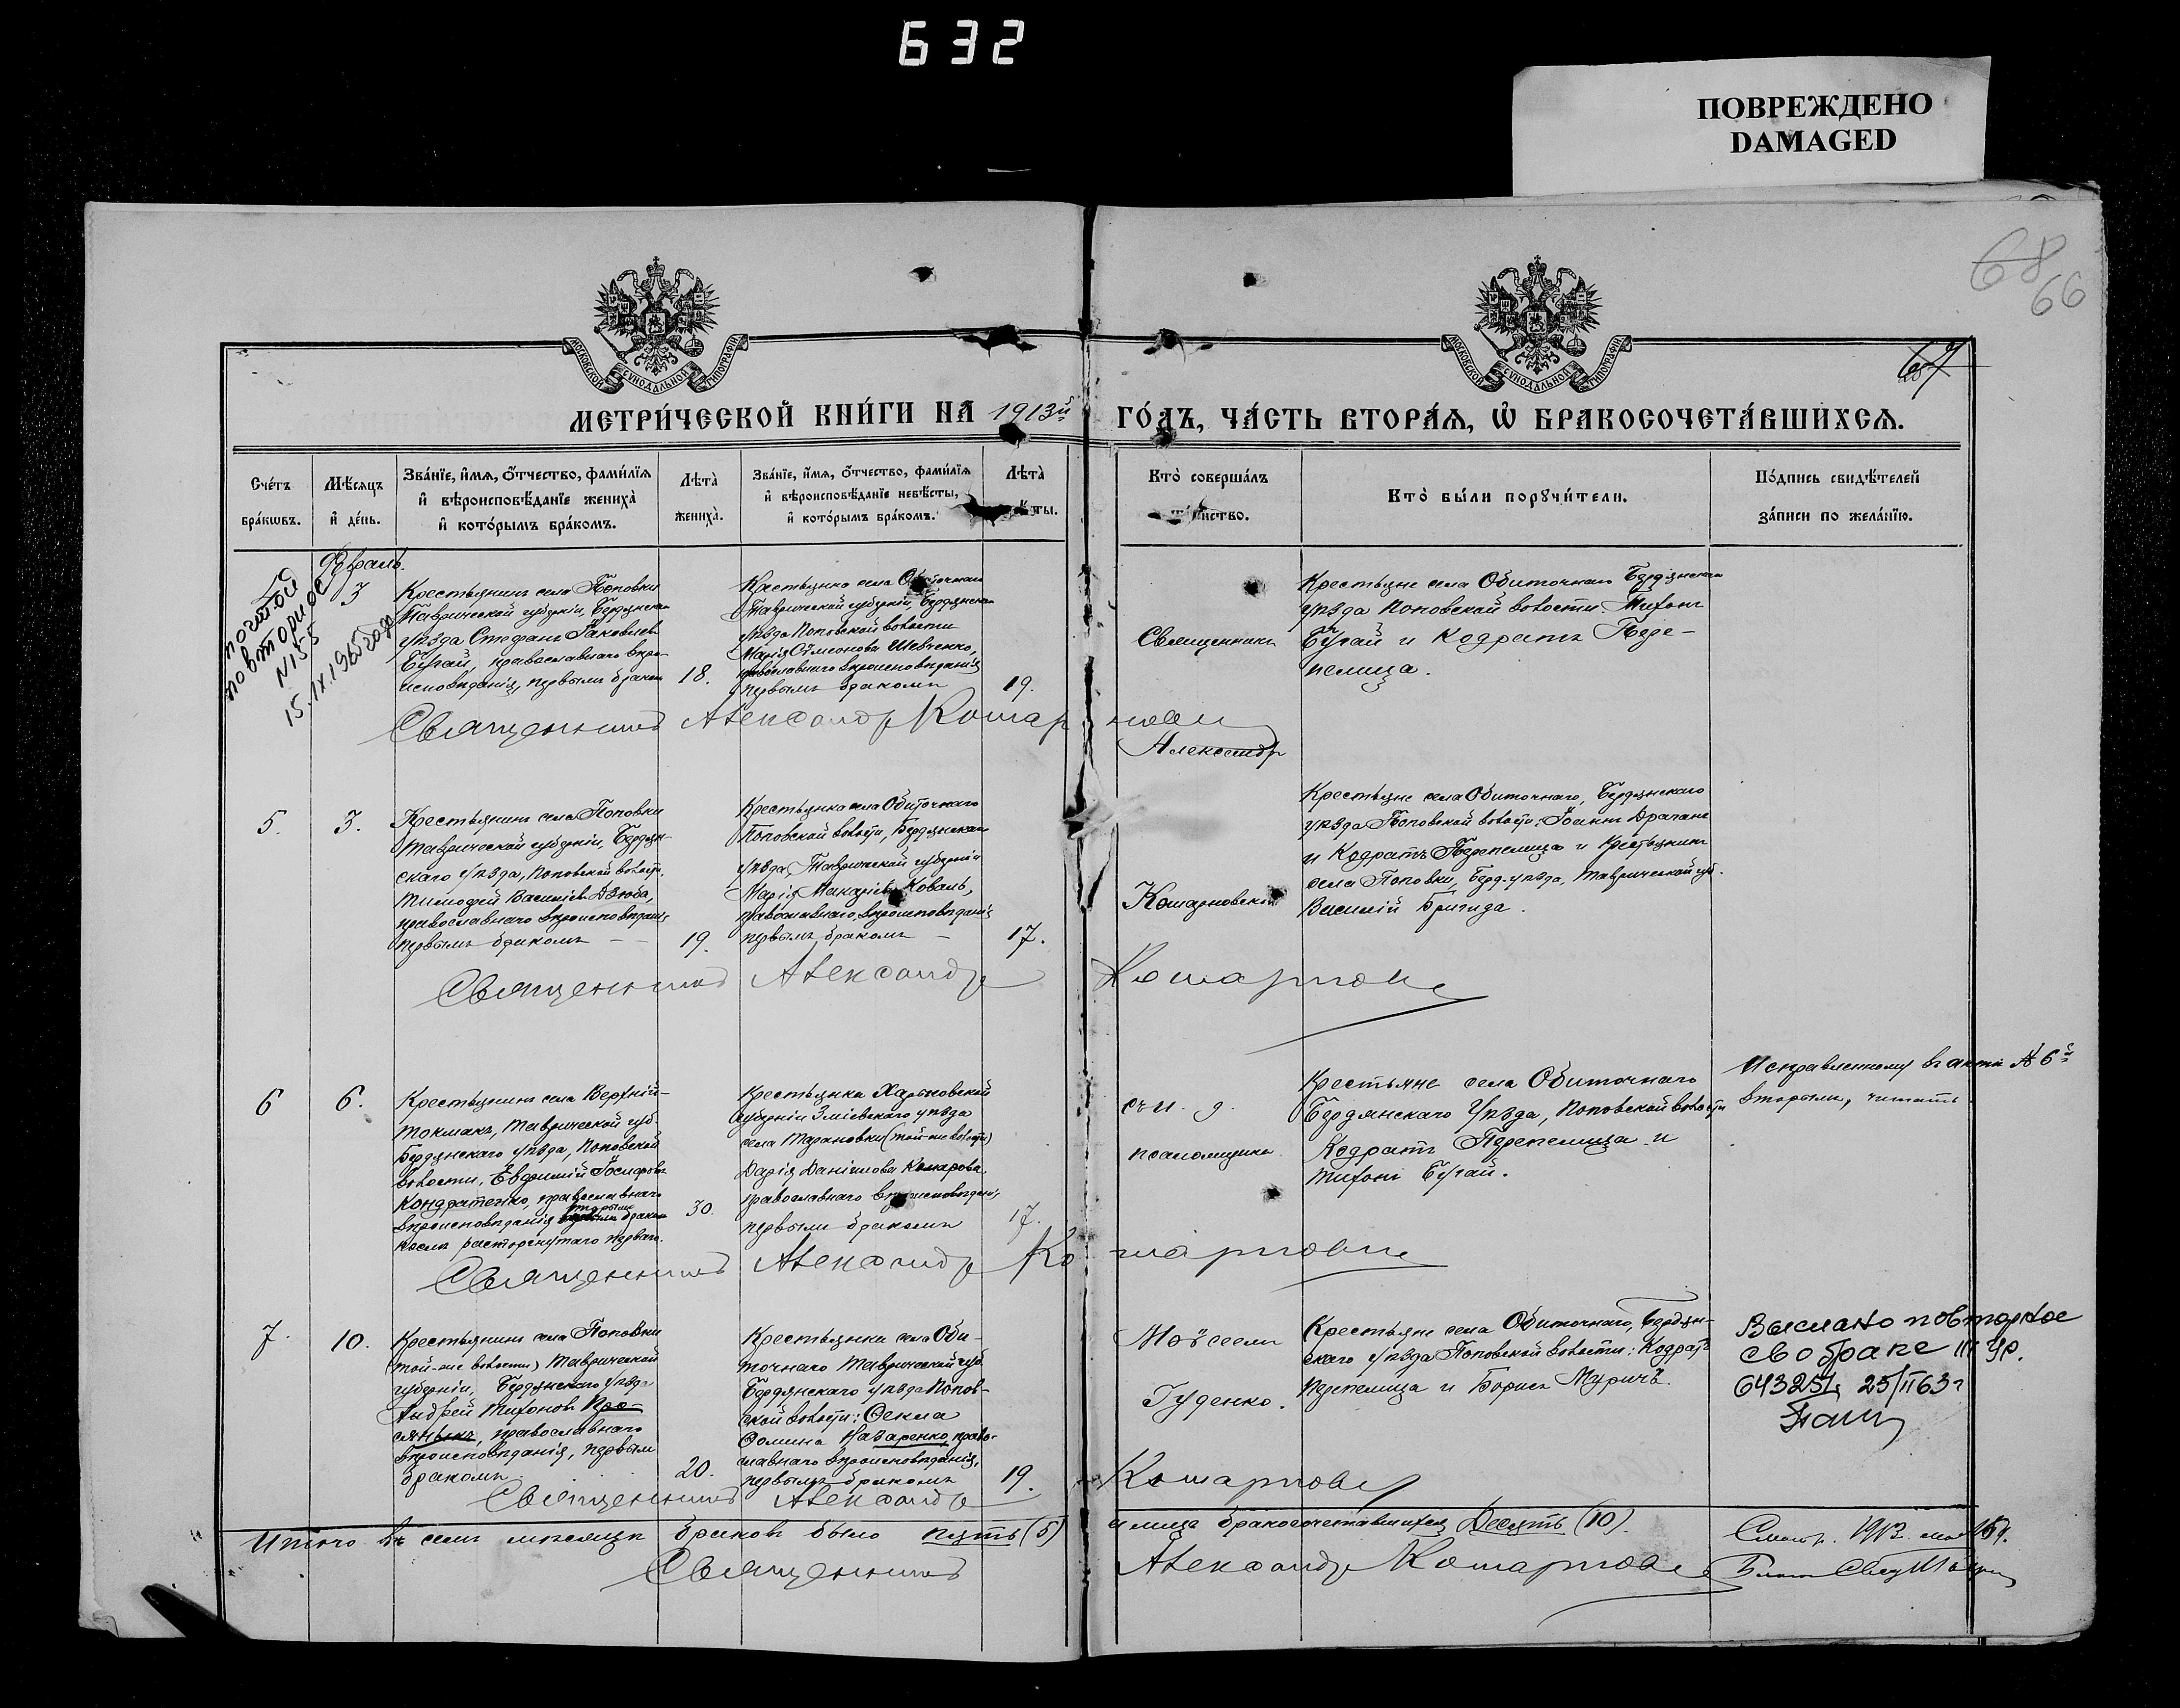 632
ПОВРЕЖДЕНО
DAMAGED
68
66
67
МОСКОВСКОЙ СУНОДАЛЬНОЙ ТИПОГРАФІИ
МОСКОВСКОЙ СУНОДАЛЬНОЙ ТИПОГРАФІИ
МЕТРИ́ЧЕСКОЙ КНИ́ГИ НА 1913й ГО́ДЪ, ЧА́СТЬ ВТОРА́Я, Ѡ БРАКОСОЧЕТА́ВШИХСЯ.
Сче́тъ
бра́кѡвъ.
Мѣ́сяцъ
и҆ де́нь.
Зва́нїе, и҆́мя, ѻ҆́тчество, фами́лїя
и҆ вѣроисповѣ́данїе жениха̀
и҆ кото́рымъ бра́комъ.
Лѣта̀
жениха̀.
Зва́нїе, и҆́мя, ѻ҆́тчество, фами́лїя
и҆ вѣроисповѣ́данїе невѣ́сты,
и҆ кото́рымъ бра́комъ.
Лѣта̀
Кто̀ соверша́лъ
Кто̀ бы́ли порꙋчи́тели.
По́дпись свидѣ́телей
за́писи по жела́нїю.
Февраль.
3
повторное
N 155
15.IX.1965 года
Крестьянинъ села Поповки
Таврической губерніи, Бердянскаго
уѣзда Стефанъ Іаковлевъ
Бугай, православнаго вѣро-
исповѣданія, первымъ бракомъ
18.
Крестьянка села Обиточнаго
Таврической губерніи, Бердянскаго
уѣзда Поповской волости
Марія Симеонова Шевченко,
православнаго вѣроисповѣданія
первымъ бракомъ
19.
Священникъ
Крестьяне села Обиточнаго Бердянскаго
уѣзда Поповской волости: Тихонъ
Бугай и Кодратъ Пере-
пелица.
Священникъ Александръ Кошарновскій
Александръ
5.
3.
Крестьянинъ села Поповки
Таврической губерніи, Бердян-
скаго уѣзда, Поповской волости,
Тимофей Васильевъ Дзюба,
православнаго вѣроисповѣданія
первымъ бракомъ
19.
Крестьянка села Обиточнаго
Поповской волости, Бердянскаго
уѣзда, Таврической губерніи
Марія Коваль,
православнаго вѣроисповѣданія
первымъ бракомъ
17.
Кошарновскій
Крестьяне села Обиточнаго, Бердянскаго
уѣзда Поповской волости: Іоаннъ Драганъ
и Кодратъ Перепелица и Крестьянинъ
села Поповки, Берд. уѣзда, Таврической губ.
Василій Бригида.
Священникъ Александръ Кошарновскій
6
6.
Крестьянинъ села Верхній-
Токмакъ, Таврической губ.
Бердянскаго уѣзда, Поповской
волости, Евфимій Іосифовъ
Кондратенко, православнаго
вѣроисповѣданія вторымъ бракомъ
послѣ расторгнутаго перваго.
30.
Крестьянка Харьковской
губерніи Зміевскаго уѣзда
села Тарановки (той-же волости)
Дарія Даніилова Комарова,
православнаго вѣроисповѣданія,
первымъ бракомъ
17.
с. и. д.
псаломщика
Крестьяне села Обиточнаго
Бердянскаго Уѣзда, Поповской волости
Кодратъ Перепелица и
Тихонъ Бугай.
Исправленному въ актѣ № 6й
вторымъ, читать
Священникъ Александръ Кошарновскій
7.
10.
Крестьянинъ села Поповки
(той-же волости) Таврической
губерніи, Бердянскаго уѣзда
Андрей Тихоновъ Про-
православнаго
вѣроисповѣданія, первымъ
бракомъ
20.
Крестьянка села Оби-
точнаго Таврической губ.
Бердянскаго уѣзда Попов-
ской волости: Ѳекла
Ѳомина Назаренко, право-
славнаго вѣроисповѣданія,
первымъ бракомъ
19.
Моѵсеем
Гуденко.
Крестьяне села Обиточнаго, Бердян-
скаго уѣзда Поповской волости: Кодратъ
Перепелица и Борисъ Муричъ.
Выслано повторное
св о браке III УР.
643251, 25/II 63 г
Священникъ Александръ Кошарновскій
Итого въ семъ мѣсяцѣ браковъ было пять (5) и лицъ бракосочетавшихся Десять (10).
Священникъ Александръ Кошарновскій